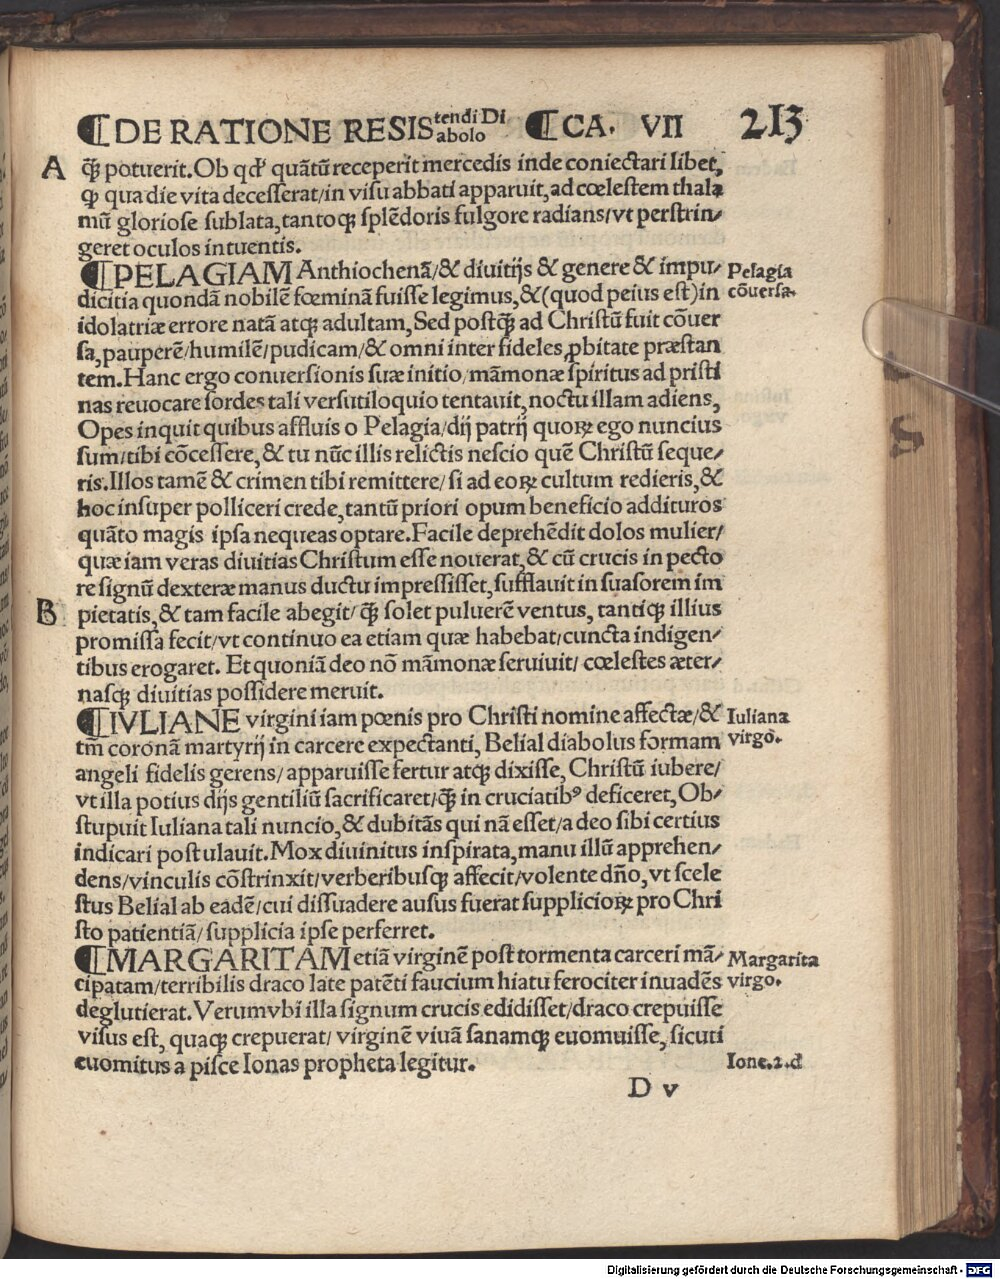 ¶DE RATIONE RESIStendi Diabolo ¶CA. VII 213
A q̃ꝫ potuerit. Ob qd' quãtũ receperit mercedis inde coniectari libet,
ꝙ qua die vita decesserat/in visu abbati apparuit, ad cœlestem thala
mũ gloriose sublata, tantoqꝫ splẽdoris fulgore radians/vt perstrin/
geret oculos intuentis.
¶PELAGIAM Anthiochenã/& diuitijs & genere & impu/ Pelagia
dicitia quondã nobilẽ fœminã fuisse legimus, &(quod peius est)in cõuersa.
idolatriæ errore natã atqꝫ adultam, Sed postq̃ꝫ ad Christũ fuit cõuer
sa, pauperẽ/humilẽ/pudicam/& omni inter fideles ꝓbitate præstan
tem. Hanc ergo conuersionis suæ initio/mãmonæ spiritus ad pristi
nas reuocare sordes tali versutiloquio tentauit, noctu illam adiens,
Opes inquit quibus affluis o Pelagia/dij patrij quoꝝ ego nuncius
sum/tibi cõcessere, & tu nũc illis relictis nescio quẽ Christũ seque/
ris. Illos tamẽ & crimen tibi remittere/si ad eoꝝ cultum redieris, &
hoc insuper polliceri crede, tantũ priori opum beneficio addituros
quãto magis ipsa nequeas optare. Facile deprehẽdit dolos mulier/
quæ iam veras diuitias Christum esse nouerat, & cũ crucis in pecto
re signũ dexteræ manus ductu impressisset, sufflauit in suasorem im
B pietatis, & tam facile abegit/q̃ꝫ solet puluerẽ ventus, tantiqꝫ illius
promissa fecit/vt continuo ea etiam quæ habebat/cuncta indigen/
tibus erogaret. Et quoniã deo nõ mãmonæ seruiuit/ cœlestes æter/
nasqꝫ diuitias possidere meruit.
¶IVLIANE virgini iam pœnis pro Christi nomine affectæ/& Iuliana
tm̃ coronã martyrij in carcere expectanti, Belial diabolus formam virgo.
angeli fidelis gerens/apparuisse fertur atqꝫ dixisse, Christũ iubere/
vt illa potius dijs gentiliũ sacrificaret/q̃ꝫ in cruciatibꝰ deficeret, Ob/
stupuit Iuliana tali nuncio, & dubitãs qui nã esset/a deo sibi certius
indicari postulauit. Mox diuinitus inspirata, manu illũ apprehen/
dens/vinculis cõstrinxit/verberibusqꝫ affecit/volente dño, vt scele
stus Belial ab eadẽ/cui dissuadere ausus fuerat supplicioꝝ pro Chri
sto patientiã/supplicia ipse perferret.
¶MARGARITAM etiã virginẽ post tormenta carceri mã/ Margarita
cipatam/terribilis draco late patẽti faucium hiatu ferociter inuadẽs virgo.
deglutierat. Verumvbi illa signum crucis edidisset/draco crepuisse
visus est, quaqꝫ crepuerat/ virginẽ viuã sanamqꝫ euomuisse, sicuti
euomitus a pisce Ionas propheta legitur. Ione.2.d
D v
Digitalisierung gefördert durch die Deutsche Forschungsgemeinschaft - DFG